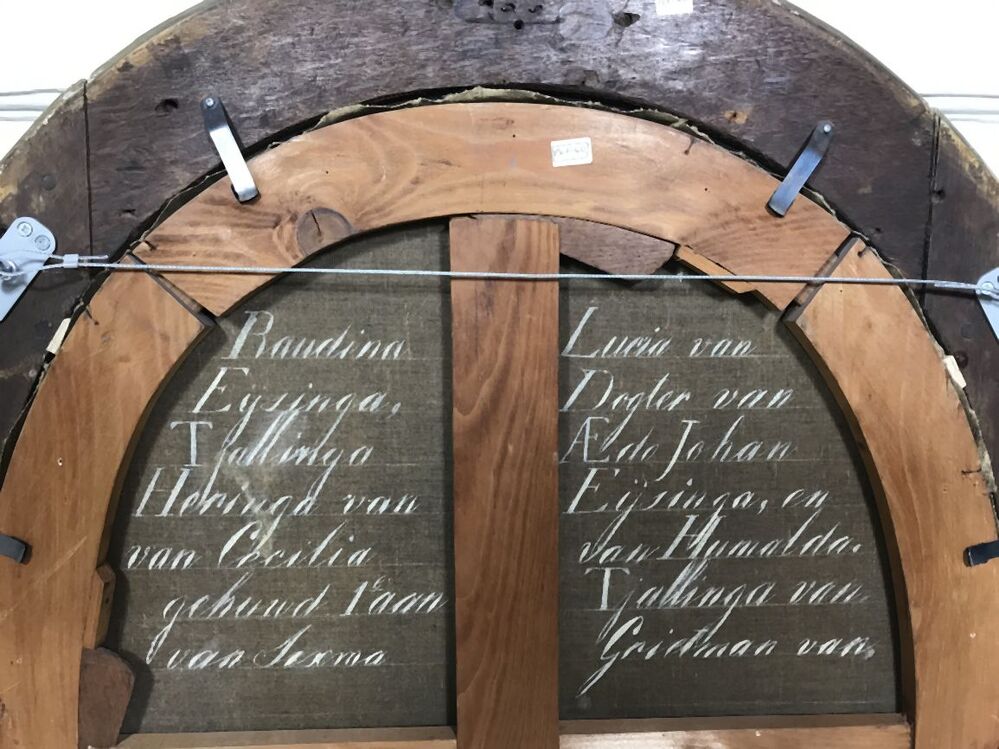 Raudina Lucia van
Eijsinga, Dogter van
Tjallinga Ædo Johan
Heringa van Eijsinga, en
van Cecilia van Humalda.
gehuud 1e aan Tjallinga van
van Sixma Grietman van